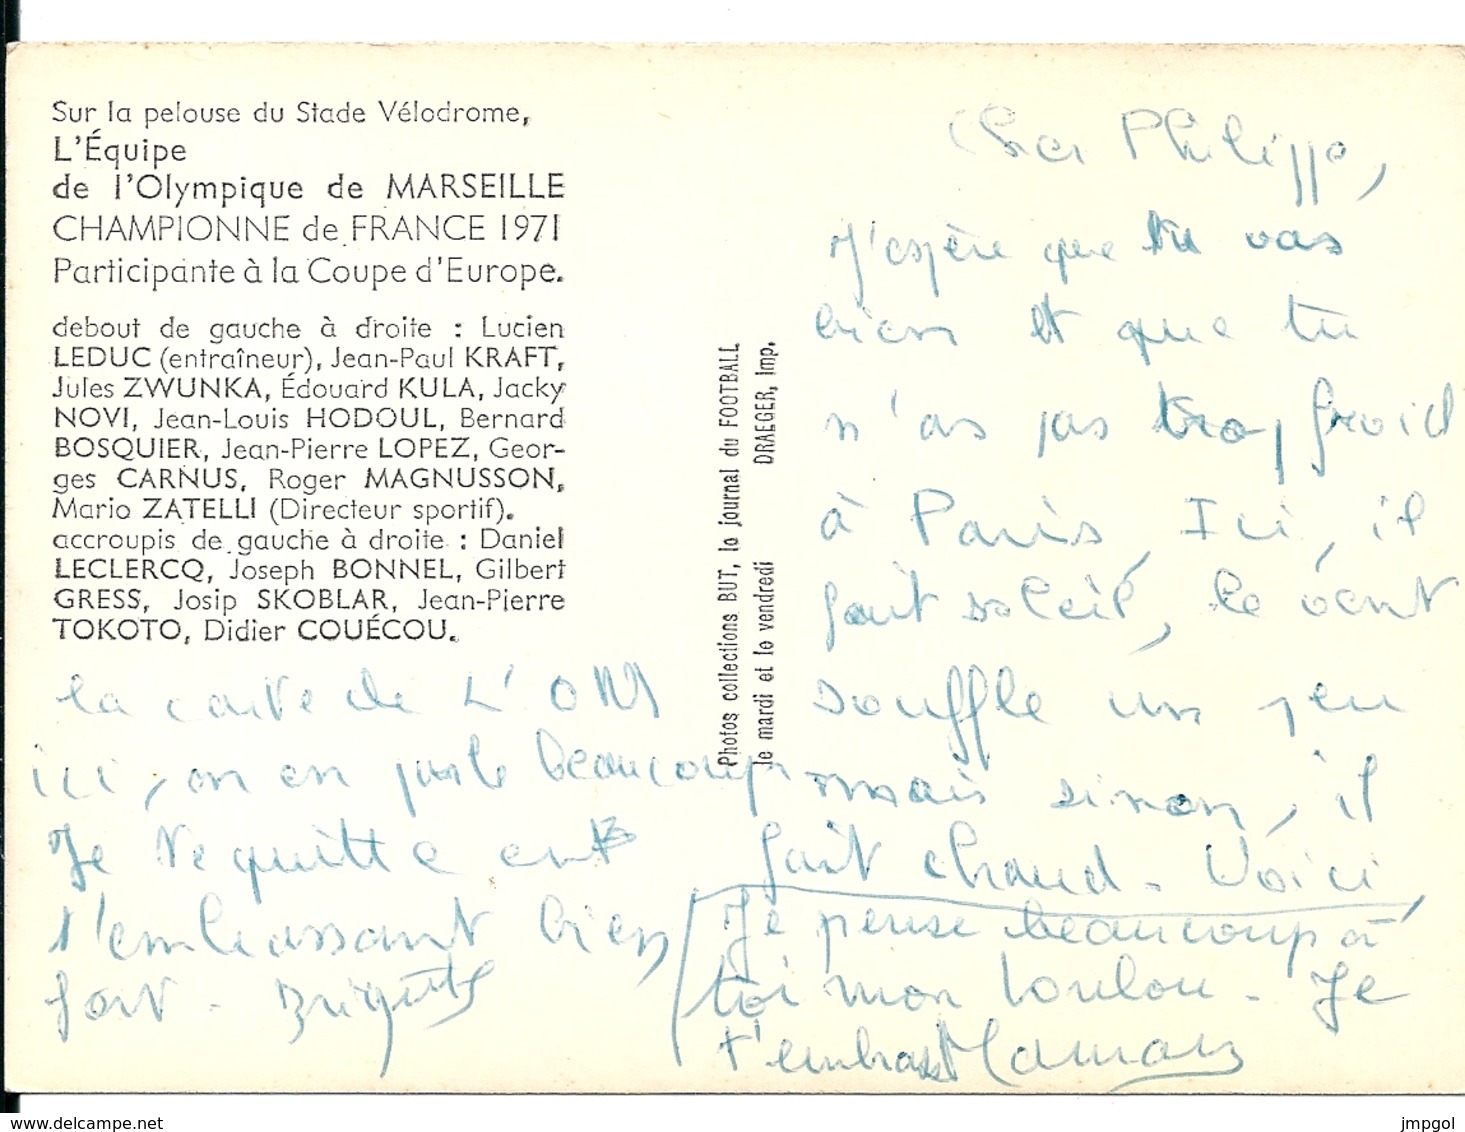 Sur la pelouse du Stade Vélodrome,
L'Équipe
de l'Olympique de MARSEILLE
CHAMPIONNE de FRANCE 1971
Participante à la Coupe d'Europe.
debout de gauche à droite : Lucien
LEDUC (entraîneur), Jean-Paul KRAFT,
Jules ZWUNKA, Édouard KULA, Jacky
NOVI, Jean-Louis HODOUL, Bernard
BOSQUIER, Jean-Pierre LOPEZ, Geor-
ges CARNUS, Roger MAGNUSSON,
Mario ZATELLI (Directeur sportif).
accroupis de gauche à droite : Daniel
LECLERCQ, Joseph BONNEL, Gilbert
GRESS, Josip SKOBLAR, Jean-Pierre
TOKOTO, Didier COUÉCOU.
Photos collections BUT, le journal du FOOTBALL
le mardi et le vendredi DRAEGER, Imp.
Cher Philippe,
J'espère que tu vas
bien et que tu
n'as pas trop froid
à Paris, Ici, il
fait soleil, le vent
souffle un peu
mais sinon, il
fait chaud - Voici
la carte de L'OM
ici, on en parle beaucoup
Je te quitte en
t'embrassant bien
fort - Brigitte
Je pense beaucoup à
toi mon loulou - Je
t'embrasse Maman
jmpgol